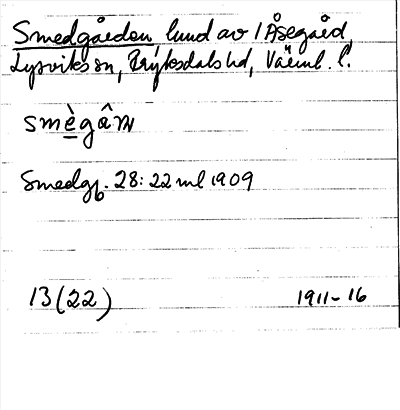 Smedgården lund av 1 Åsegård,
Lysviks sn, Fryksdals hd, Värml. l.
smègâṇ
Smedg. 28:22 ml 1909
13(22) 1911-16